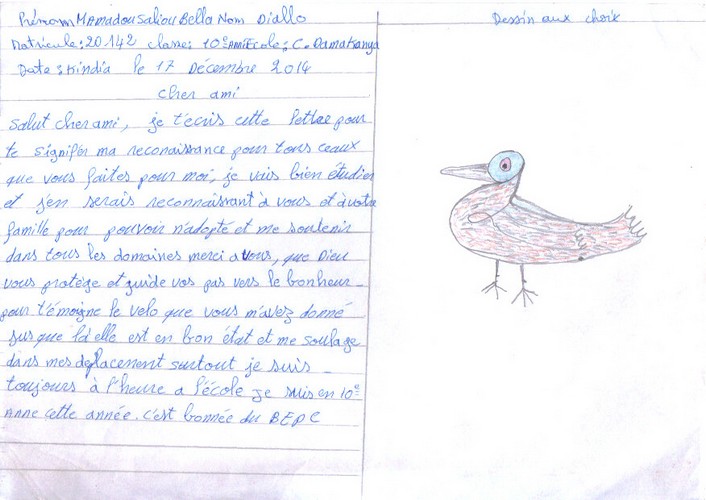 Prénom MAmadou Saliou Bella Nom Diallo
Matricule : 20142 classe: 10e année Ecole ; C. Damakanya
Date : Kindia le 17 Décembre 2014
Cher ami
Salut cher ami, je t'écris cette lettre pour
te signifér ma reconaissance pour tous ceaux
que vous faites pour moi, je vais bien étudier
et j'en serais reconnaissant à vous et à votre
famille pour pouvoir n'adopté et me soutenir
dans tous les domaines merci a vous, que Dieu
vous protège et guide vos pas vers le bonheur
pour t'émoigne le velo que vous m'avez donné
jusque là elle est en bon état et me soulage
dans mes deplacement surtout je suis
toujours à l'heure a l'école je suis en 10e
Anne cette année. c'est l'année du BEPC
Dessin aux choix